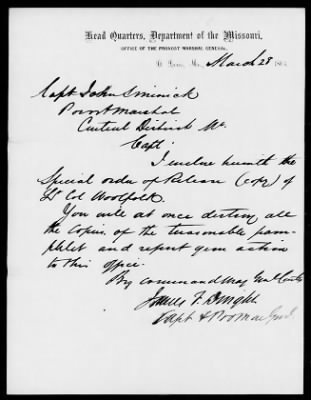 Head Quarters, Department of the Missouri,
OFFICE OF THE PROVOST MARSHAL GENERAL,
St. Louis, Mo., March 28 186
Capt John
Provst Marshal
Central District Mo.
Capt;
I inclose herewith the
Special order of Release (copy) of
Lt Col Woolfolk.
You will at once destroy all
the copies of the treasonable pam-
phlet and report your action
to this office.
By command Maj Genl Curtis
James F. Dwight
Capt & Pro Mar Genl.